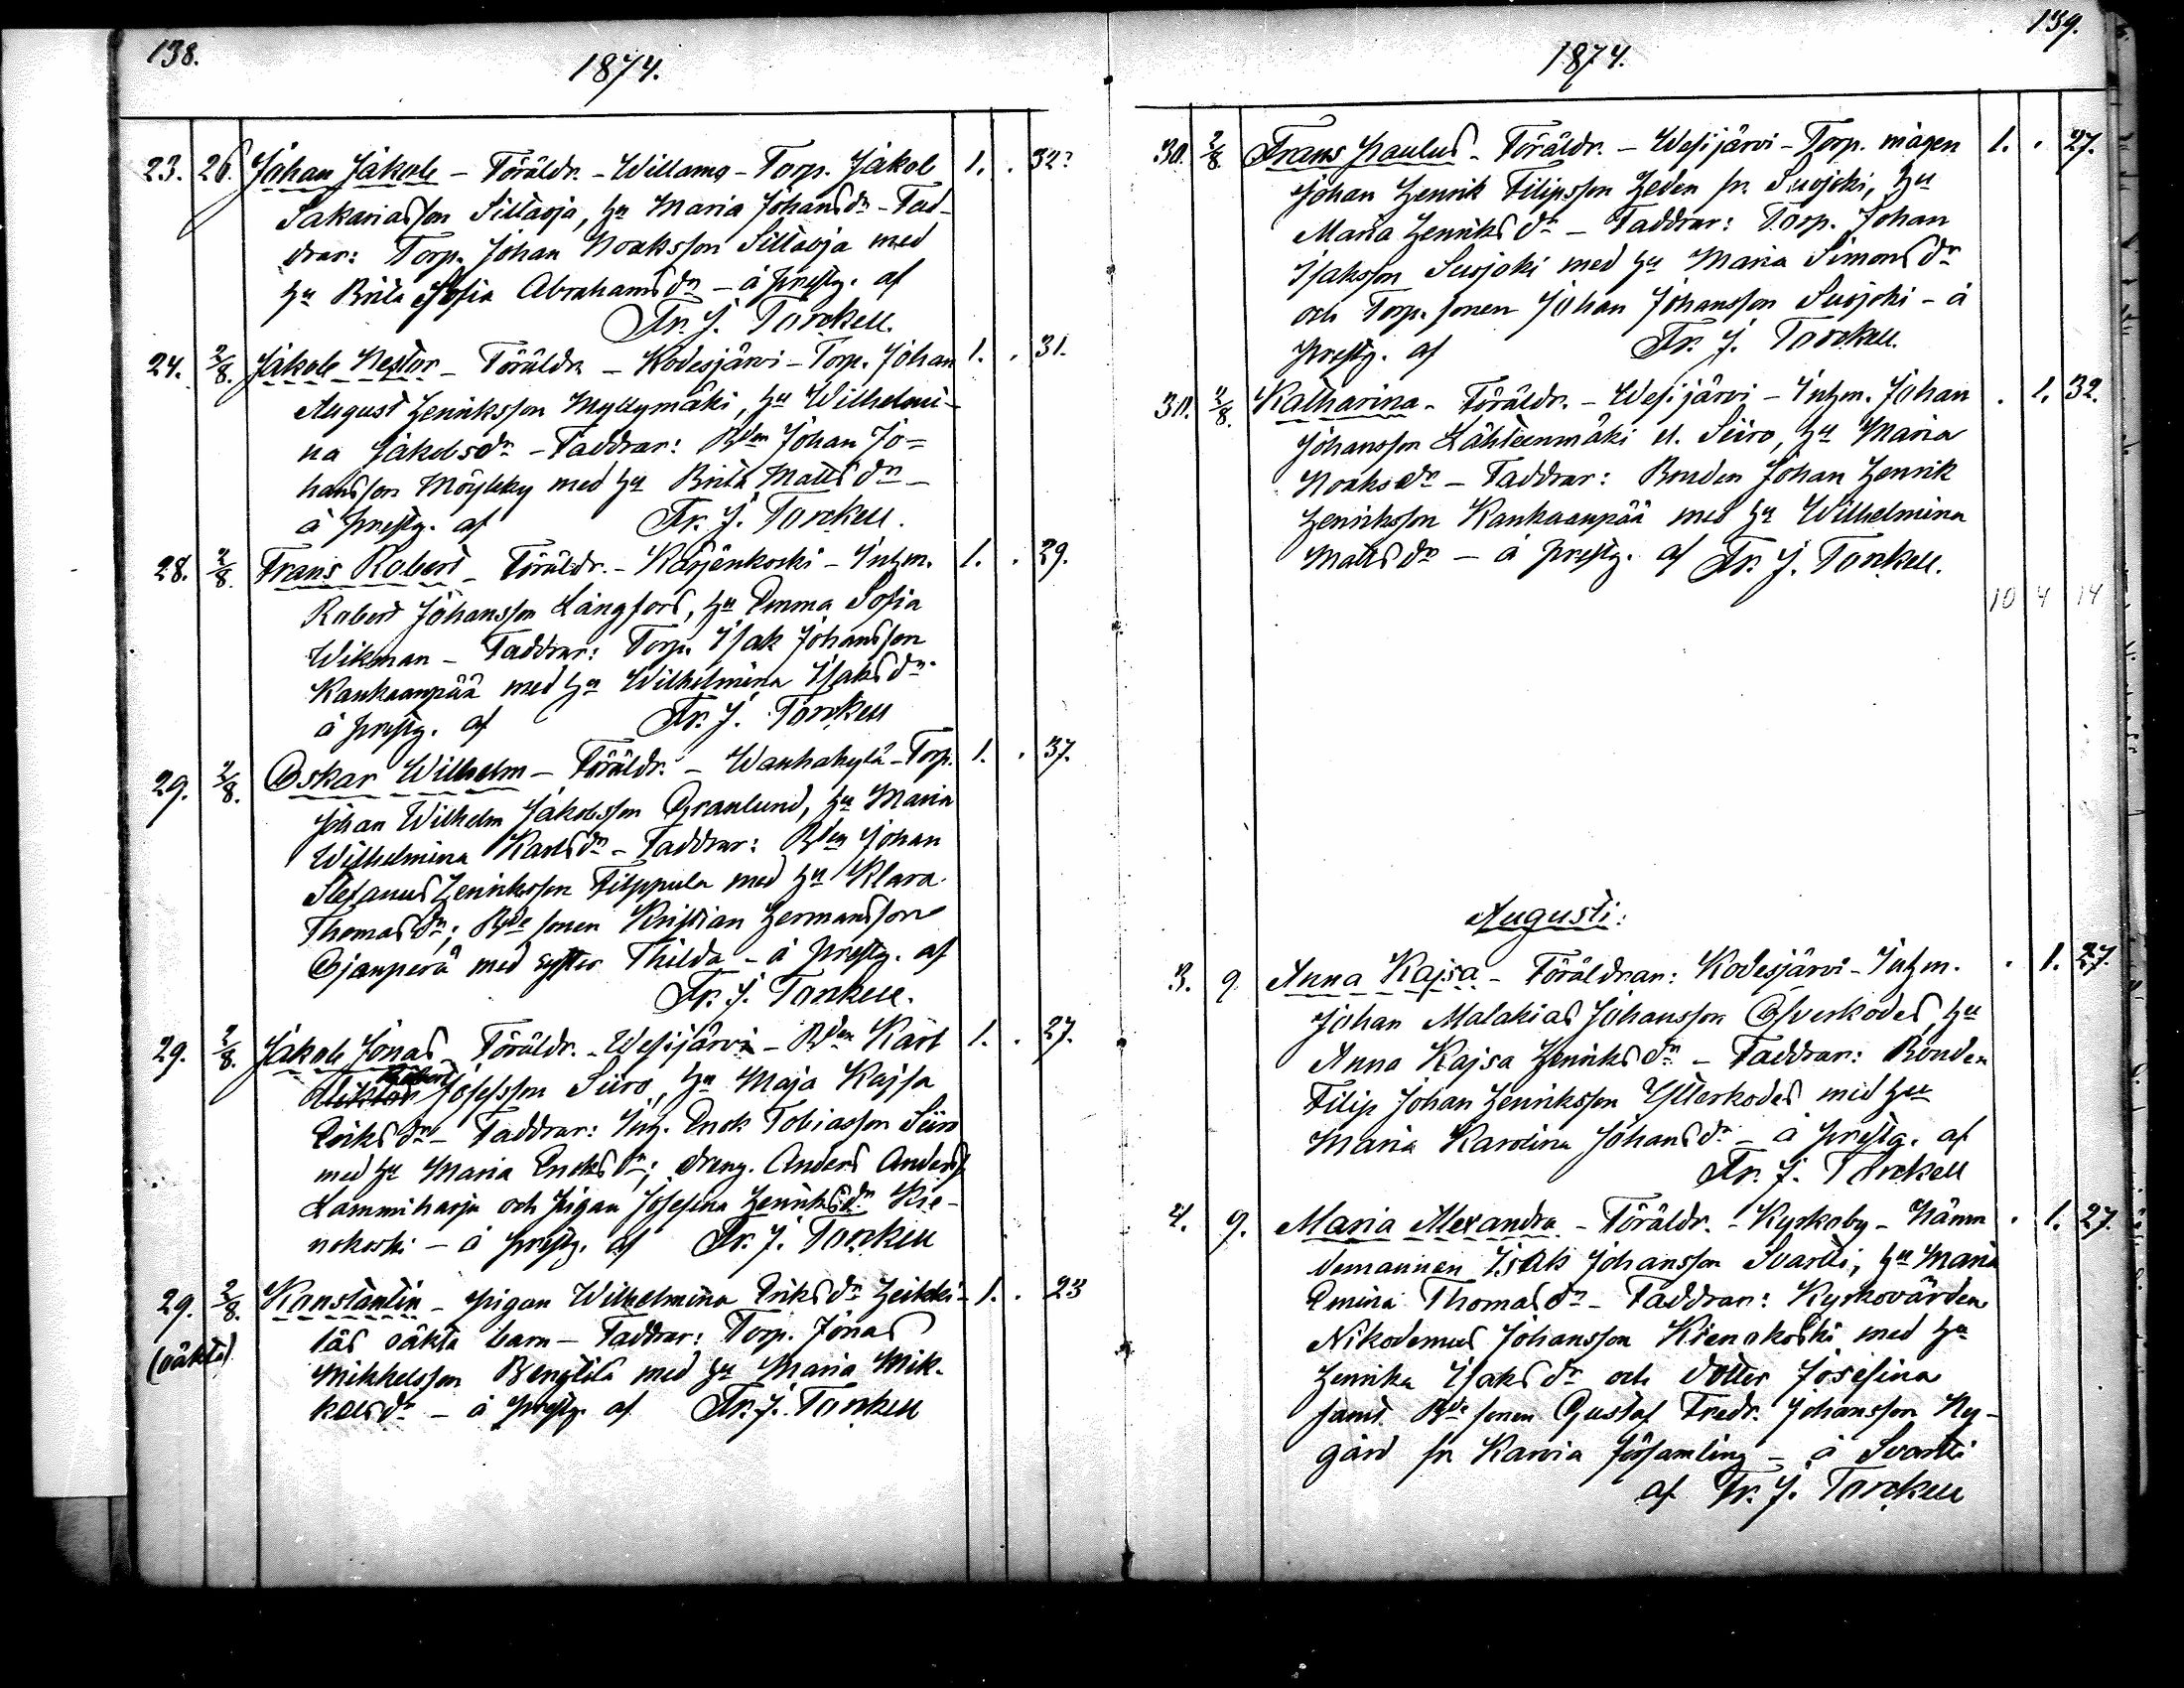 138.
1874.
23. 26. Johan Jakob - Föräldr. - Willamo - Torp. Jakob 1. . 32?
Sakariasson Sillaoja, hu Maria Johansdr - Fad-
drar: Torp. Johan Noaksson Sillaoja med
hu Brita Sofia Abrahamsdr - å prestg. af
Fr. J. Torckell.
24. 2/8. Jakob Nestor - Föräldr. - Kodesjärvi - Torp. Johan 1. . 31.
August Henriksson Myllymäki, hu Wilhelmi-
na Jakobsdr - Faddrar: Bden Johan Jo-
hansson Möykky med hu Brita Mattsdr -
å prestg. af Fr. J. Torckell.
28. 2/8. Frans Robert - Föräldr. - Karjenkoski - Inhm. 1. . 29.
Robert Johansson Långfors, hu Emma Sofia
Wikman - Faddrar: Torp. Isak Johansson
Kankaanpää med hu Wilhelmina Isaksdr
å prestg. af Fr. J. Torckell
29. 2/8. Oskar Wilhelm - Föräldr. - Wanhakylä - Torp. 1. . 37.
Johan Wilhelm Jakobsson Granlund, hu Maria
Wilhelmina Karlsdr - Faddrar: Bden Johan
Stefanus Henriksson Filppula med hu Klara
Thomasdr; Bde sonen Kristian Hermansson
Ojanperä med syster Thilda - å prestg. af
Fr. J. Torckell.
29. 2/8. Jakob Jonas - Föräldr. - Wesijärvi - Bden Karl 1. . 27.
Josefsson Siiro, hu Maja Kajsa
Eriksdr - Faddrar: Inh. Enok Tobiasson Siiro
med hu Maria Enoksdr; dreng. Anders Anderss
Lammiharju och pigan Josefina Henriksdr Kie-
nokoski - å prestg. af Fr. J. Torckell
29. 2/8. Konstantin - pigan Wilhelmina Eriksdr Heikki- 1. . 23
(oäkta) läs oäkta barn - Faddrar: Torp. Jonas
Mikkelsson Bengtilä med hu Maria Mik-
kelsdr - å prestg. af Fr. J. Torckell
139.
1874.
30. 2/8 Frans Paulus - Föräldr. - Wesijärvi - Torp. mågen 1. . 27.
Johan Henrik Filipsson Heden fr. Susjoki, hu
Maria Henriksdr - Faddrar: Torp. Johan
Isaksson Susjoki med hu Maria Simonsdr
och Torp. sonen Johan Johansson Susjoki - å
prestg. af Fr. J. Torckell.
30. 2/8. Katharina - Föräldr. - Wesijärvi - Inhm. Johan . 1. 32.
Johansson Lähteenmäki el. Siiro, hu Maria
Noaksdr - Faddrar: Bonden Johan Henrik
Henriksson Kankaanpää med hu Wilhelmina
Mattsdr - å prestg. af Fr. J. Torckell.
10 4 14
Augusti:
3. 9 Anna Kajsa - Föräldrar: Kodesjärvi - Inhm. . 1. 27.
Johan Malakias Johansson Öfverkodes, hu
Anna Kajsa Henriksdr - Faddrar: Bonden
Filip Johan Henriksson Ytterkodes med hu
Maria Karolina Johansdr - å prestg. af
Fr. J. Torckell
4. 9. Maria Alexandra - Föräldr. - Kyrkoby - Nämn . 1. 27.
demannen Isak Johansson Svartti, hu Maria
Emina Thomasdr - Faddrar: Kyrkovärden
Nikodemus Johansson Kienokoski med hu
Henrika Isaksdr och dotter Josefina
samt Bde sonen Gustaf Fredr. Johansson Ny-
gård fr Karvia församling - å Svartti
af Fr. J. Torckell